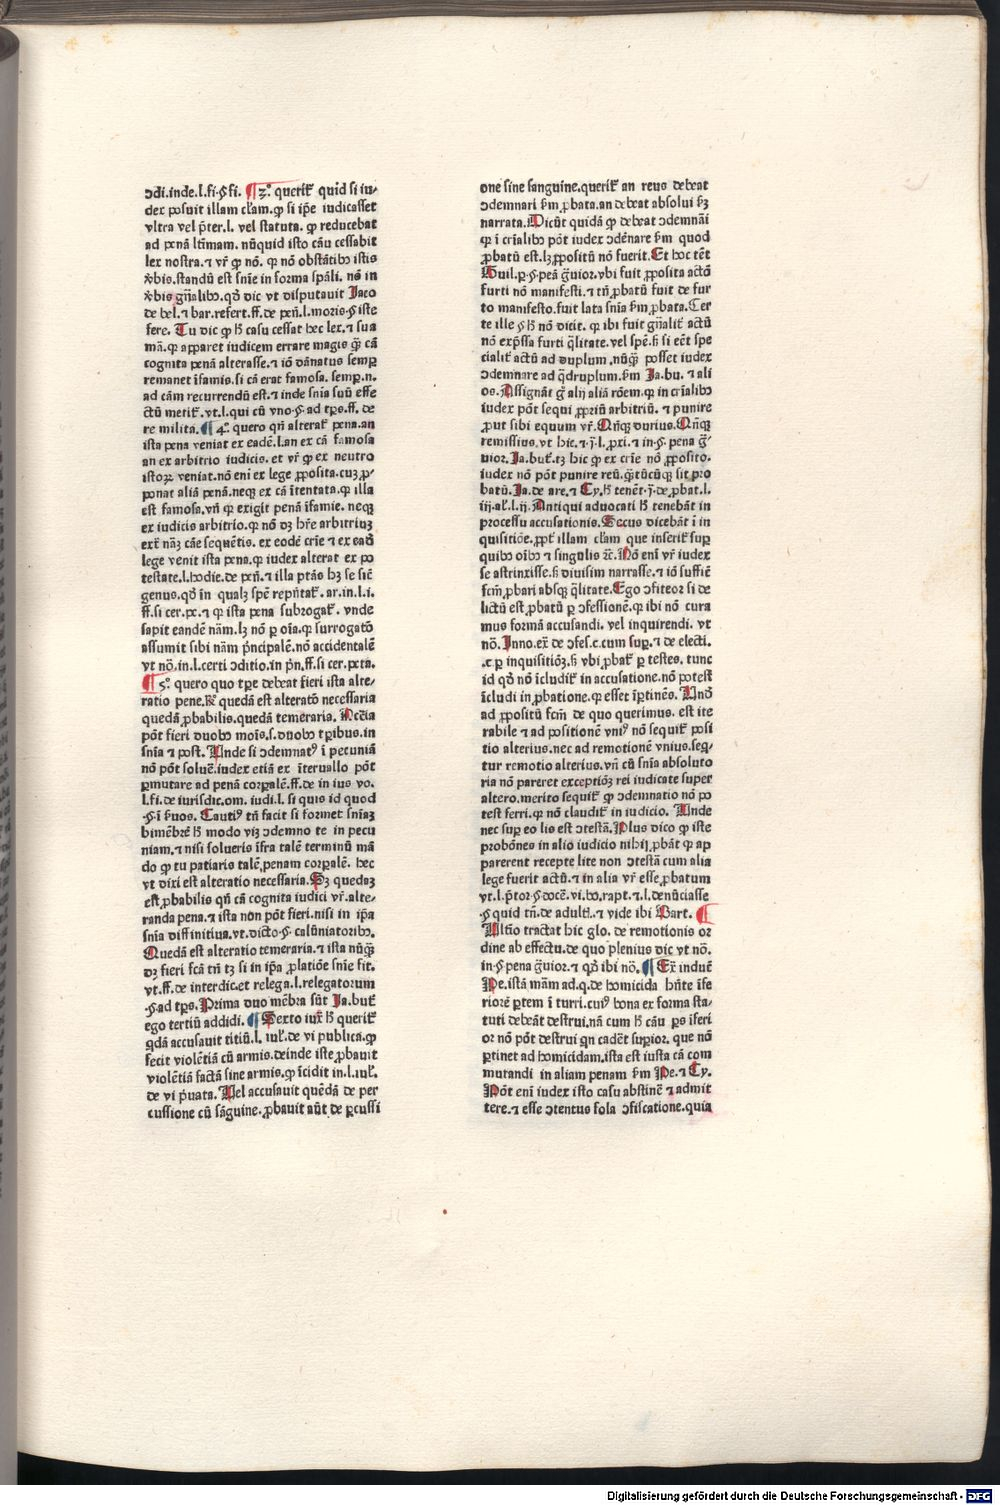 ↄdi.inde.l.fi.§ fi. ¶ 3.º querit̃ quid si iu⸗
dex posuit illam cl̃am.ꝙ si ip̃e iudicasset
vltra vel p̃ter.l. vel statuta. ꝙ reducebat
ad penã ltĩmam. nũquid isto cãu cessabit
lex nostra.⁊ vr̃ ꝙ nõ. ꝙ nõ obstãtibꝰ istis
v̾bis.standũ est sñie in forma sp̃ali. nõ in
v̾bis gñalibꝰ.qđ dic vt disputauit Jaco
de bel.⁊ bar.refert.ff.de peñ.l.moris.§ iste
fere. Tu dic ꝙ ħ casu cessat hec lex.⁊ sua
mã.ꝙ apparet iudicem errare magis q̃ꝫ cã
cognita penã alterasse.⁊ iõ dãnatus semꝑ
remanet ĩfamis.si cã erat famosa. semꝑ.n.
ad cãm recurrendũ est.⁊ inde sñia suũ effe
ctũ metit̃.vt.l.qui cũ vno.§ ad tꝑs.ff. de
re milita. ¶ 4.º quero qñ alterat̃ pena.an
ista pena veniat ex eadẽ.l.an ex cã famosa
an ex arbitrio iudicis. et vr̃ ꝙ ex neutro
istoꝝ veniat.nõ eni ex lege ꝓposita.cuꝫ ꝓ⸗
ponat aliã penã.neqꝫ ex cã ĩtentata.ꝙ illa
est famosa.vñ ꝙ exigit penã ĩfamie. neqꝫ
ex iudicis arbitrio.ꝙ nõ dꝫ hr̃e arbitriuꝫ
ext̃ nãꝫ cãe sequẽtis. ex eodẽ crĩe ⁊ ex eađ
lege venit ista pena.ꝙ iudex alterat ex po
testate.l.hodie.de peñ.⁊ illa ptãs hꝫ se siẽ
genus.qđ in qualꝫ spẽ rep̃ntat̃. ar.in.l.i.
ff.si cer.pe.⁊ ꝙ ista pena subrogat̃. vnde
sapit eandẽ nãm.lꝫ nõ ꝑ oĩa.ꝙ surrogatõ
assumit sibi nãm p̃ncipalẽ.nõ accidentalẽ
vt nõ.in.l.certi ↄditio.in pñ.ff.si cer.peta.
¶ 5.º quero quo tꝑe debeat fieri ista alte⸗
ratio pene.ꝶ̃ quedã est alteratõ necessaria
quedã ꝓbabilis.quedã temeraria. Necc̃ia
põt fieri duobꝰ moĩs.s.duobꝰ tꝑibus.in
sñia ⁊ post. Unde si ↄdemnatꝰ ĩ pecuniã
nõ põt soluẽ.iudex etiã ex ĩteruallo põt
ꝑmutare ad penã corꝑalẽ.ff.de in ius vo.
l.fi.de iurisdic.om. iudi.l. si quis id quod
.§.i ẞuos. Cautiꝰ tñ facit si formet sñiaꝫ
bimẽbrẽ ħ modo viꝫ ↄdemno te in pecu
niam.⁊ nisi solueris ĩfra talẽ terminũ mã
do ꝙ tu patiaris talẽ penam corꝑalẽ. hec
vt dixi est alteratio necessaria. Sꝫ quedaꝫ
est ꝓbabilis qñ cã cognita iudici vr̃.alte⸗
randa pena.⁊ ista non põt fieri.nisi in ip̃a
sñia diffinitiua.vt.dicto.§ calũniatoribꝰ.
Quedã est alteratio temeraria.⁊ ista nũq̃ꝫ
dꝫ fieri fcã tñ tꝫ si in ip̃a ꝓlatiõe sñie fit.
vt.ff.de interdic.et relega.l.relegatorum
.§ ad tꝑs. Prima duo mẽbra sũt Ja.but̃
ego tertiũ addidi. ¶ Sexto iux̃ ħ querit̃
qdã accusauit titiũ.l. iul̃.de vi publica.ꝙ
fecit violẽtiã cũ armis.deinde iste ꝓbauit
violẽtiã factã sine armis.ꝙ ĩcidit in.l.iul̃.
de vi p̃uata. Uel accusauit quẽdã de per
cussione cũ sãguine.ꝓbauit aũt de ꝑcussi
one sine sanguine.querit̃ an reus debeat
ↄdemnari ẞm ꝓbata.an debeat absolui ẞꝫ
narrata. Dicũt quidã ꝙ debeat ↄdemnãi
ꝙ ĩ crĩalibꝰ põt iudex ↄdẽnare ẞm quod
ꝓbatũ est.lꝫ ꝓpositũ nõ fuerit. Et hoc tẽt
Guil.ꝑ.§ peã g̃uior.vbi fuit ꝓposita actõ
furti nõ manifesti.⁊ tñ ꝓbatũ fuit de fur
to manifesto.fuit lata sñia ẞm ꝓbata. Cer
te ille § ħ nõ dicit. ꝙ ibi fuit gñalit̃ actũ
nõ exp̃ssa furti q̃litate.vel spẽ.ẞ si eẽt spe
cialit̃ actũ ad duplum.nũq̃ꝫ posset iudex
ↄdemnare ad q̃druplum.ẞm Ja.bu.⁊ ali
os. Assignãt g̃ alij aliã rõem.ꝙ in crĩalibꝰ
iudex põt sequi ꝓpriũ arbitriũ.⁊ punire
ꝓut sibi equum vr̃. Qñqꝫ durius. Qñqꝫ
remissius.vt hic.⁊.j̃.l.ꝓxi.⁊ in.§ pena g̃⸗
uior. Ja.but̃.tꝫ hic ꝙ ex crĩe nõ ꝓposito.
iudex nõ põt punire reũ.q̃tũcũqꝫ sit pro
batũ. Ja.de are.⁊ Cy.ħ tenẽt.j̃.de ꝓbat.l.
iij.al̃.l.ij. Antiqui aduocati ħ tenebãt in
processu accusationis. Secus dicebãt ĩ in
quisitiõe.ꝓpt̃ illam cl̃am que inserit̃ suꝑ
quibꝰ oĩbꝰ ⁊ singulis ⁊c̃. Nõ eni vr̃ iudex
se astrinxisse.ẞ diuisim narrasse.⁊ iõ suffiẽ
fcm̃ ꝓbari absqꝫ q̃litate. Ego ↄfiteor si de
lictũ est ꝓbatũ ꝑ ↄfessionẽ.ꝙ ibi nõ cura
mus formã accusandi. vel inquirendi. vt
nõ. Inno.ex̃ de ↄfes.c.cum suꝑ.⁊ de electi.
.c.ꝑ inquisitiõꝫ.ẞ vbi ꝓbat̃ ꝑ testes. tunc
id qđ nõ ĩcludit̃ in accusatione.nõ potest
ĩcludi in ꝓbatione.ꝙ esset ĩꝑtinẽs. Unđ
ad ꝓpositũ fcm̃ de quo querimus. est ite
rabile ⁊ ad positionẽ vniꝰ nõ sequit̃ posi
tio alterius.nec ad remotionẽ vnius.seq̃⸗
tur remotio alterius.vñ cũ sñia absoluto
ria nõ pareret exceptiõꝫ rei iudicate super
altero.merito sequit̃ ꝙ ↄdemnatio nõ po
test ferri.ꝙ nõ claudit̃ in iudicio. Unde
nec suꝑ eo lis est ↄtestã. Plus dico ꝙ iste
probõnes in alio iudicio nihij ꝓbãt ꝙ ap
parerent recepte lite non ↄtestã cum alia
lege fuerit actũ.⁊ in alia vr̃ esse ꝓbatum
vt.l.p̃tor.§ docẽ.vi.bo.rapt.⁊.l.denũciasse
.§ quid tñ.de adult̃.⁊ vide ibi Bart. ¶
Ultĩo tractat hic glo. de remotionis or
dine ab effectu.de quo plenius dic vt nõ.
in.§ pena g̃uior.⁊ qđ ibi nõ. ¶ Ex̃ induẽ
Pe.istã mãm ad.q.de homicida hñte ĩfe
riorẽ ꝑtem ĩ turri.cuiꝰ bona ex forma sta⸗
tuti debeãt destrui.nã cum ħ cãu ꝑs ĩferi
or nõ põt destrui qn cadẽt suꝑior. que nõ
ꝑtinet ad homicidam.ista est iusta cã com
mutandi in aliam penam ẞm Pe.⁊ Cy.
Põt eni iudex isto casu abstinẽ ⁊ admit
tere.⁊ esse ↄtentus sola ↄfiscatione.quia
Digitalisierung gefördert durch die Deutsche Forschungsgemeinschaft - DFG